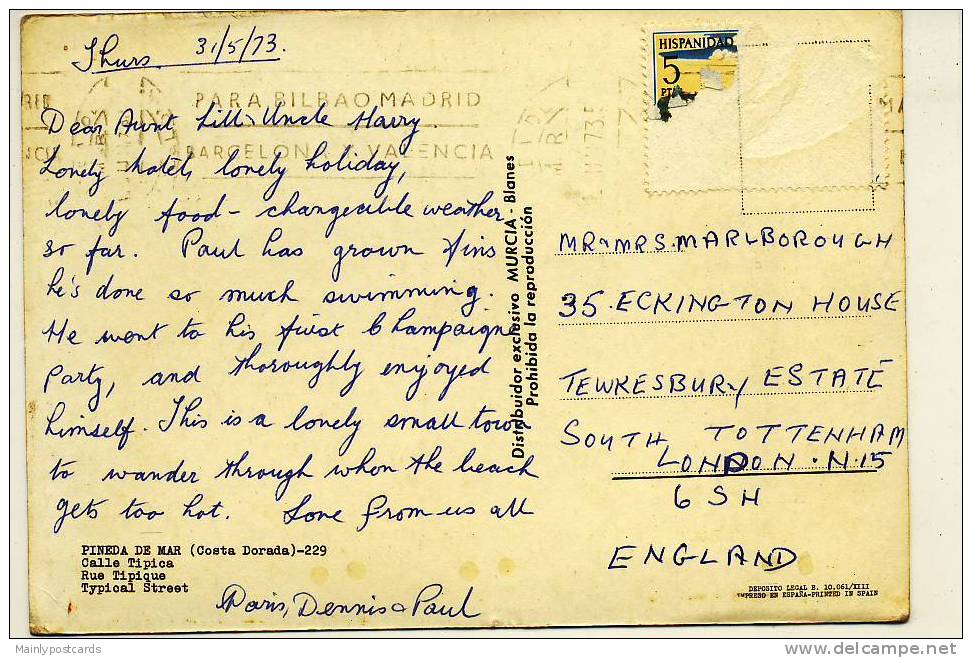 Thurs 31/5/73.
HISPANIDAD
5
PTA
PARA BILBAO MADRID
BARCELONA Y VALENCIA
Dear Aunt Lill & Uncle Harry
Lovely hotel, lovely holiday,
lovely food - changeable weather
so far. Paul has grown fins
he's done so much swimming.
He went to his first Champaigne
Party, and thoroughly enjoyed
himself. This is a lovely small town
to wander through when the beach
gets too hot. Love from us all
Doris, Dennis & Paul
PINEDA DE MAR (Costa Dorada)-229
Calle Tipica
Rue Tipique
Typical Street
Distribuidor exclusivo MURCIA - Blanes
Prohibida la reproducción
MR & MRS. MARLBOROUGH
35. ECKINGTON HOUSE
TEWKESBURY ESTATE
SOUTH TOTTENHAM
LONDON. N.15
6 SH
ENGLAND
DEPOSITO LEGAL B. 10.061/XIII
IMPRESO EN ESPAÑA-PRINTED IN SPAIN
Mainlypostcards
delcampe.net